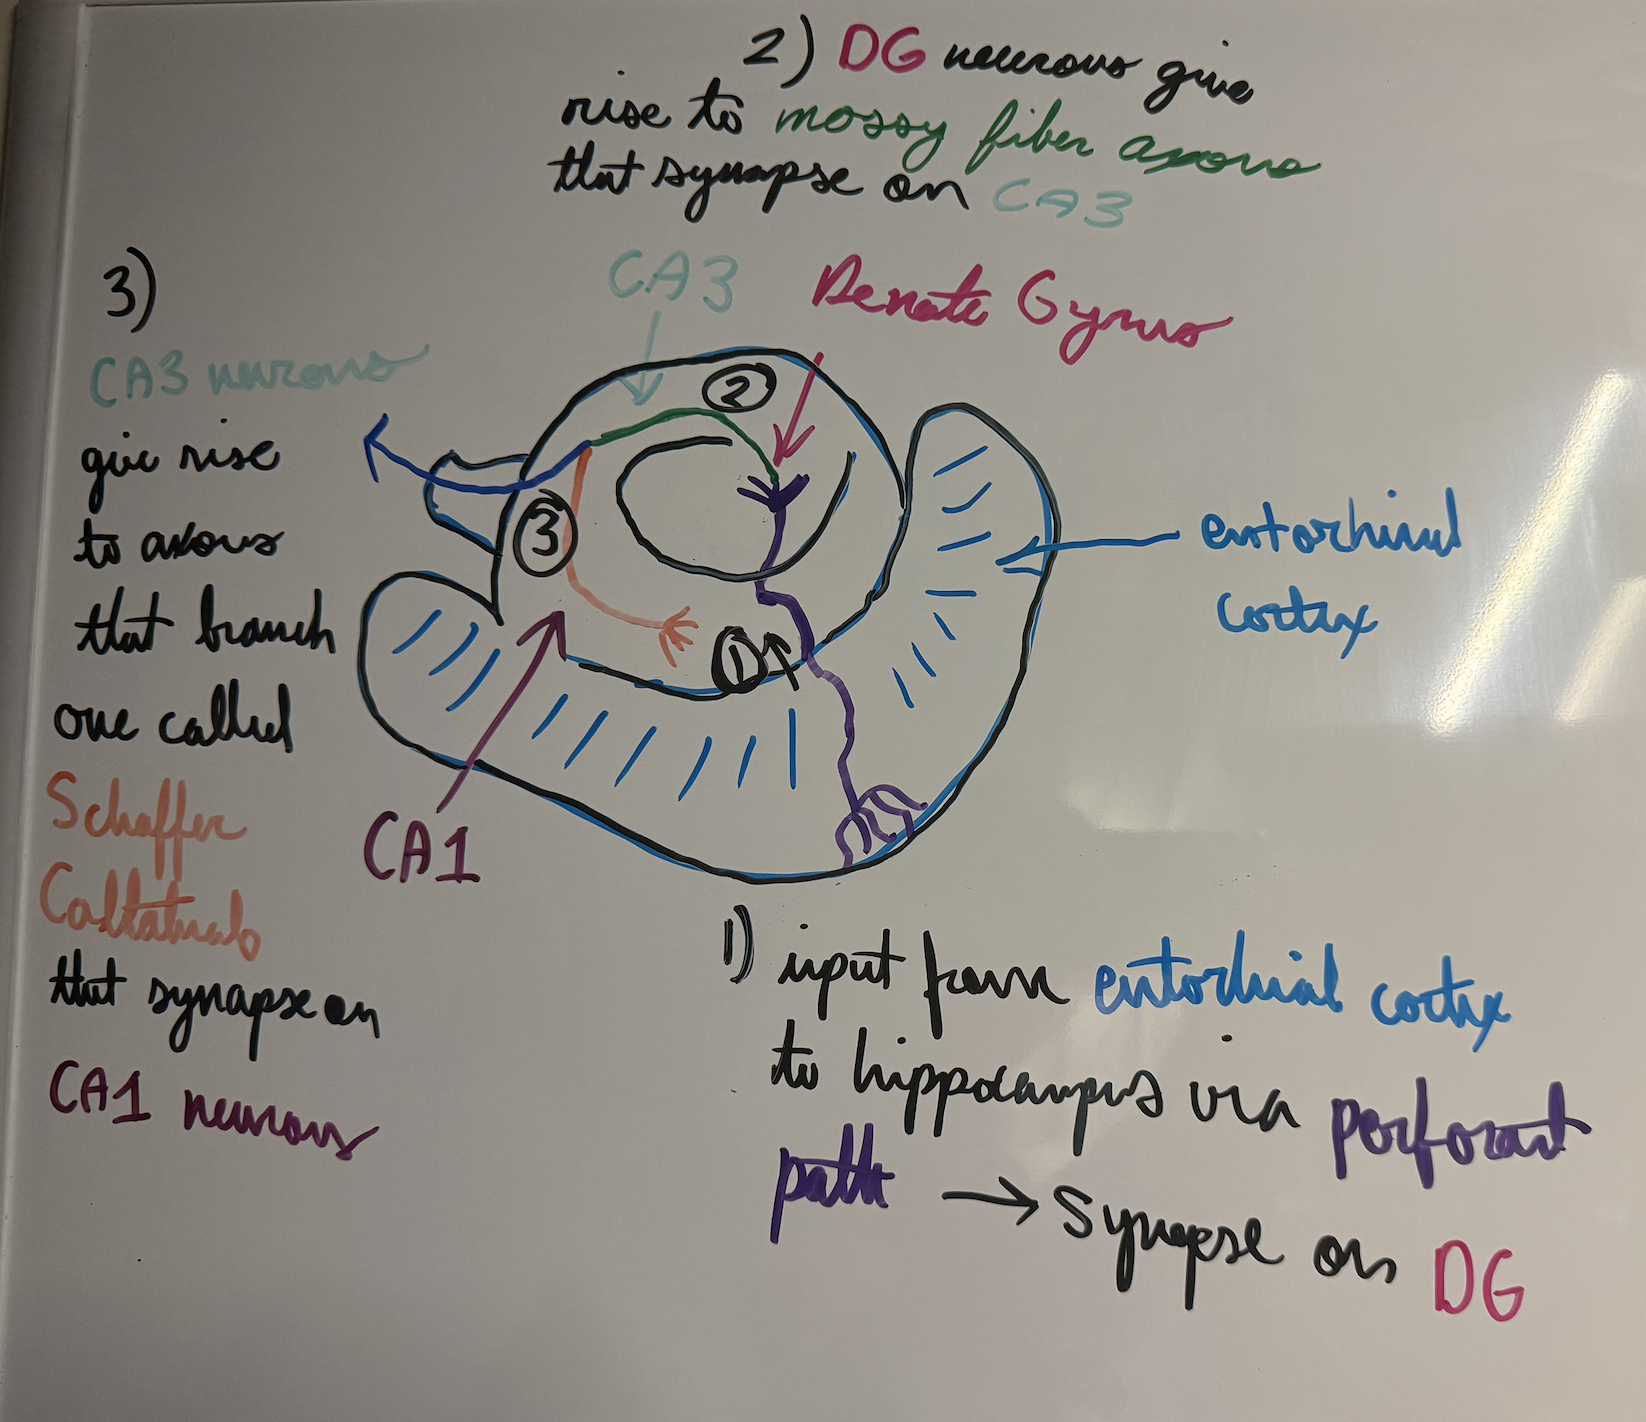 2) DG neurons give
rise to mossy fiber axons
that synapse on CA3
3)
CA3 neurons
give rise
to axons
that branch
one called
Schaffer
Collaterals
that synapse on
CA1 neurons
CA3
Denate Gyrus
2
3
1
entorhinal
cortex
CA1
1) input from entorhinal cortex
to hippocampus via perforant
path → Synapse on DG